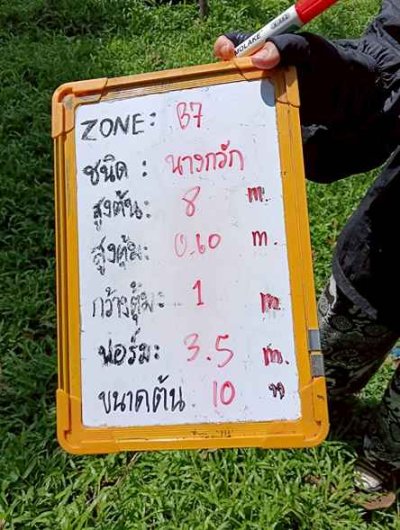 MOLAKE
ZONE: B7
ชนิด : นางกวัก
สูงต้น: 8 m.
สูงตุ้ม: 0.60 m.
กว้างตุ้ม: 1 m.
ฟอร์ม: 3.5 m.
ขนาดต้น 10